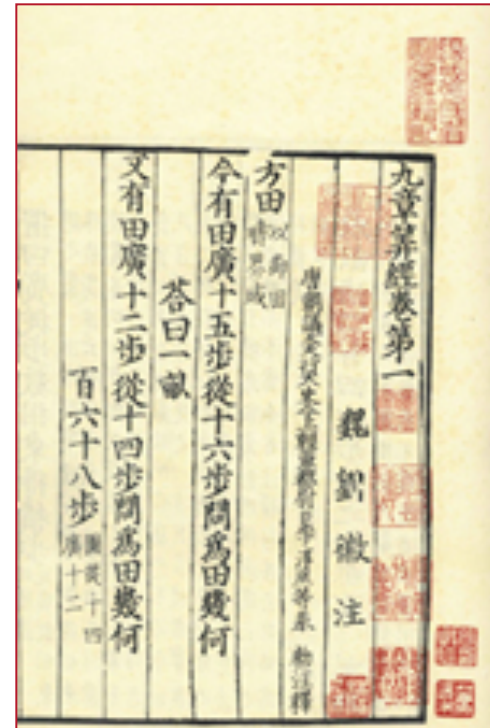 九章筭經卷第一
魏劉徽注
唐朝議大夫行太史令上輕車都尉臣李淳風等奉 勅注釋
方田以御田疇界域
今有田廣十五步從十六步問爲田幾何
荅曰一畝
又有田廣十二步從十四步問爲田幾何
百六十八步圖從十四廣十二